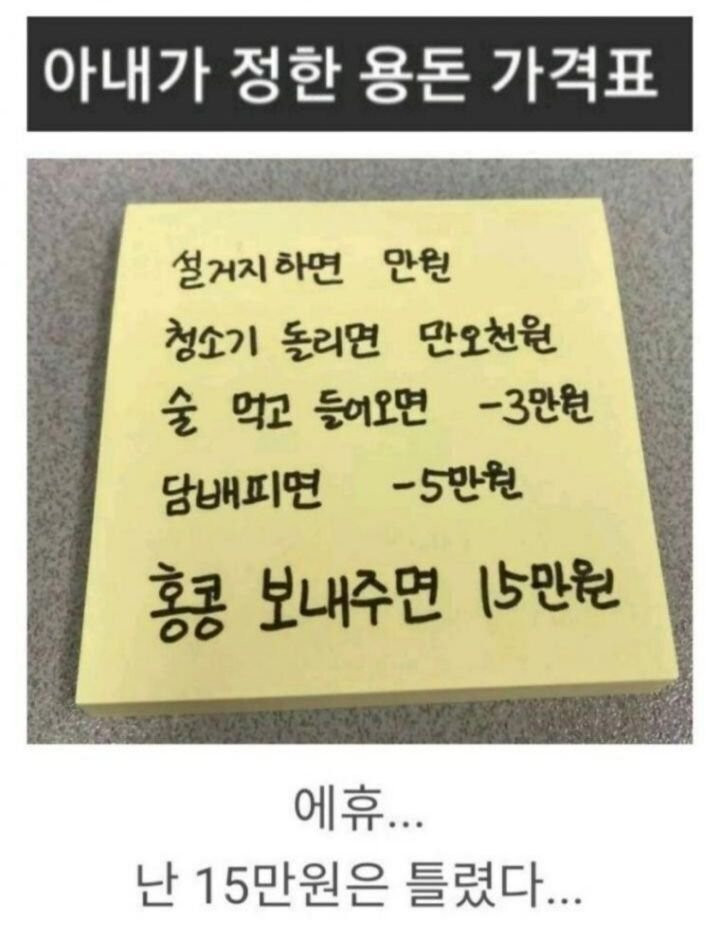 아내가 정한 용돈 가격표
설거지하면 만원
청소기 돌리면 만오천원
술 먹고 들어오면 -3만원
담배피면 -5만원
홍콩 보내주면 15만원
에휴...
난 15만원은 틀렸다...